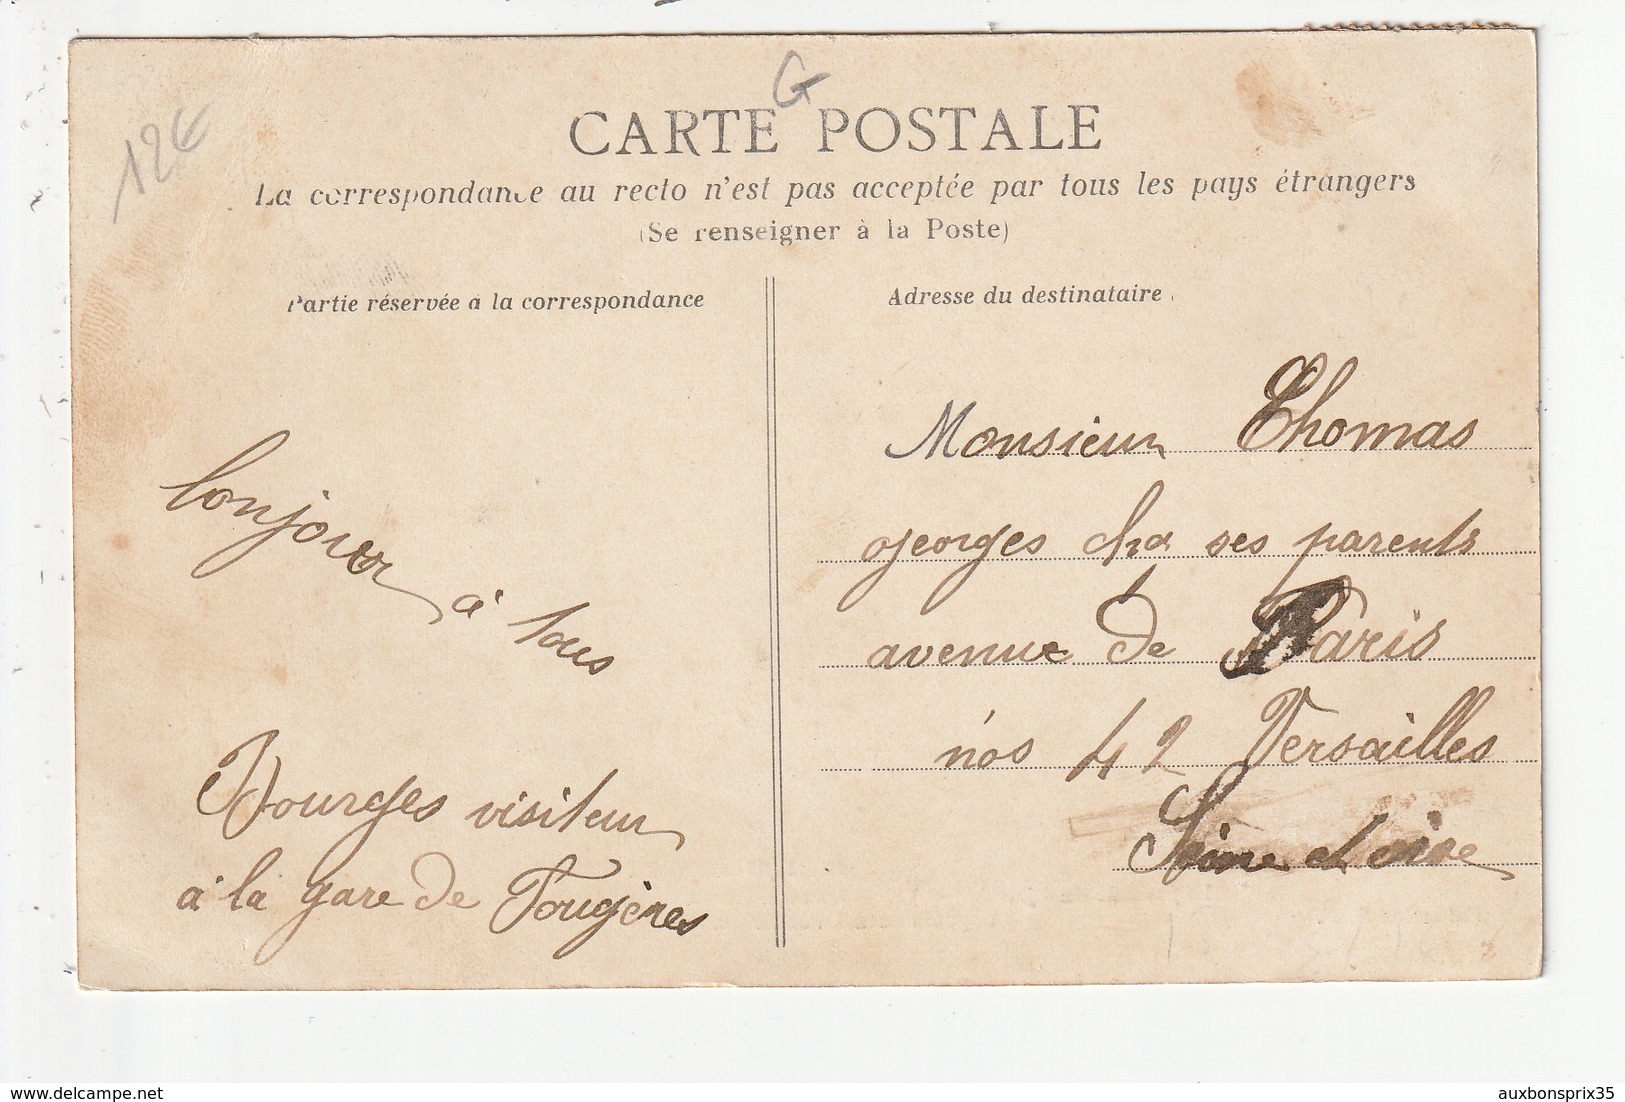 12€
G
CARTE POSTALE
La correspondance au recto n'est pas acceptée par tous les pays étrangers
(Se renseigner à la Poste)
Partie réservée à la correspondance
Adresse du destinataire
bonjour à tous
Bourges visiteur
à la gare de Fougères
Monsieur Thomas
georges chz ses parents
avenue de Paris
nos 42 Versailles
Seine et oise
delcampe.net
auxbonsprix35